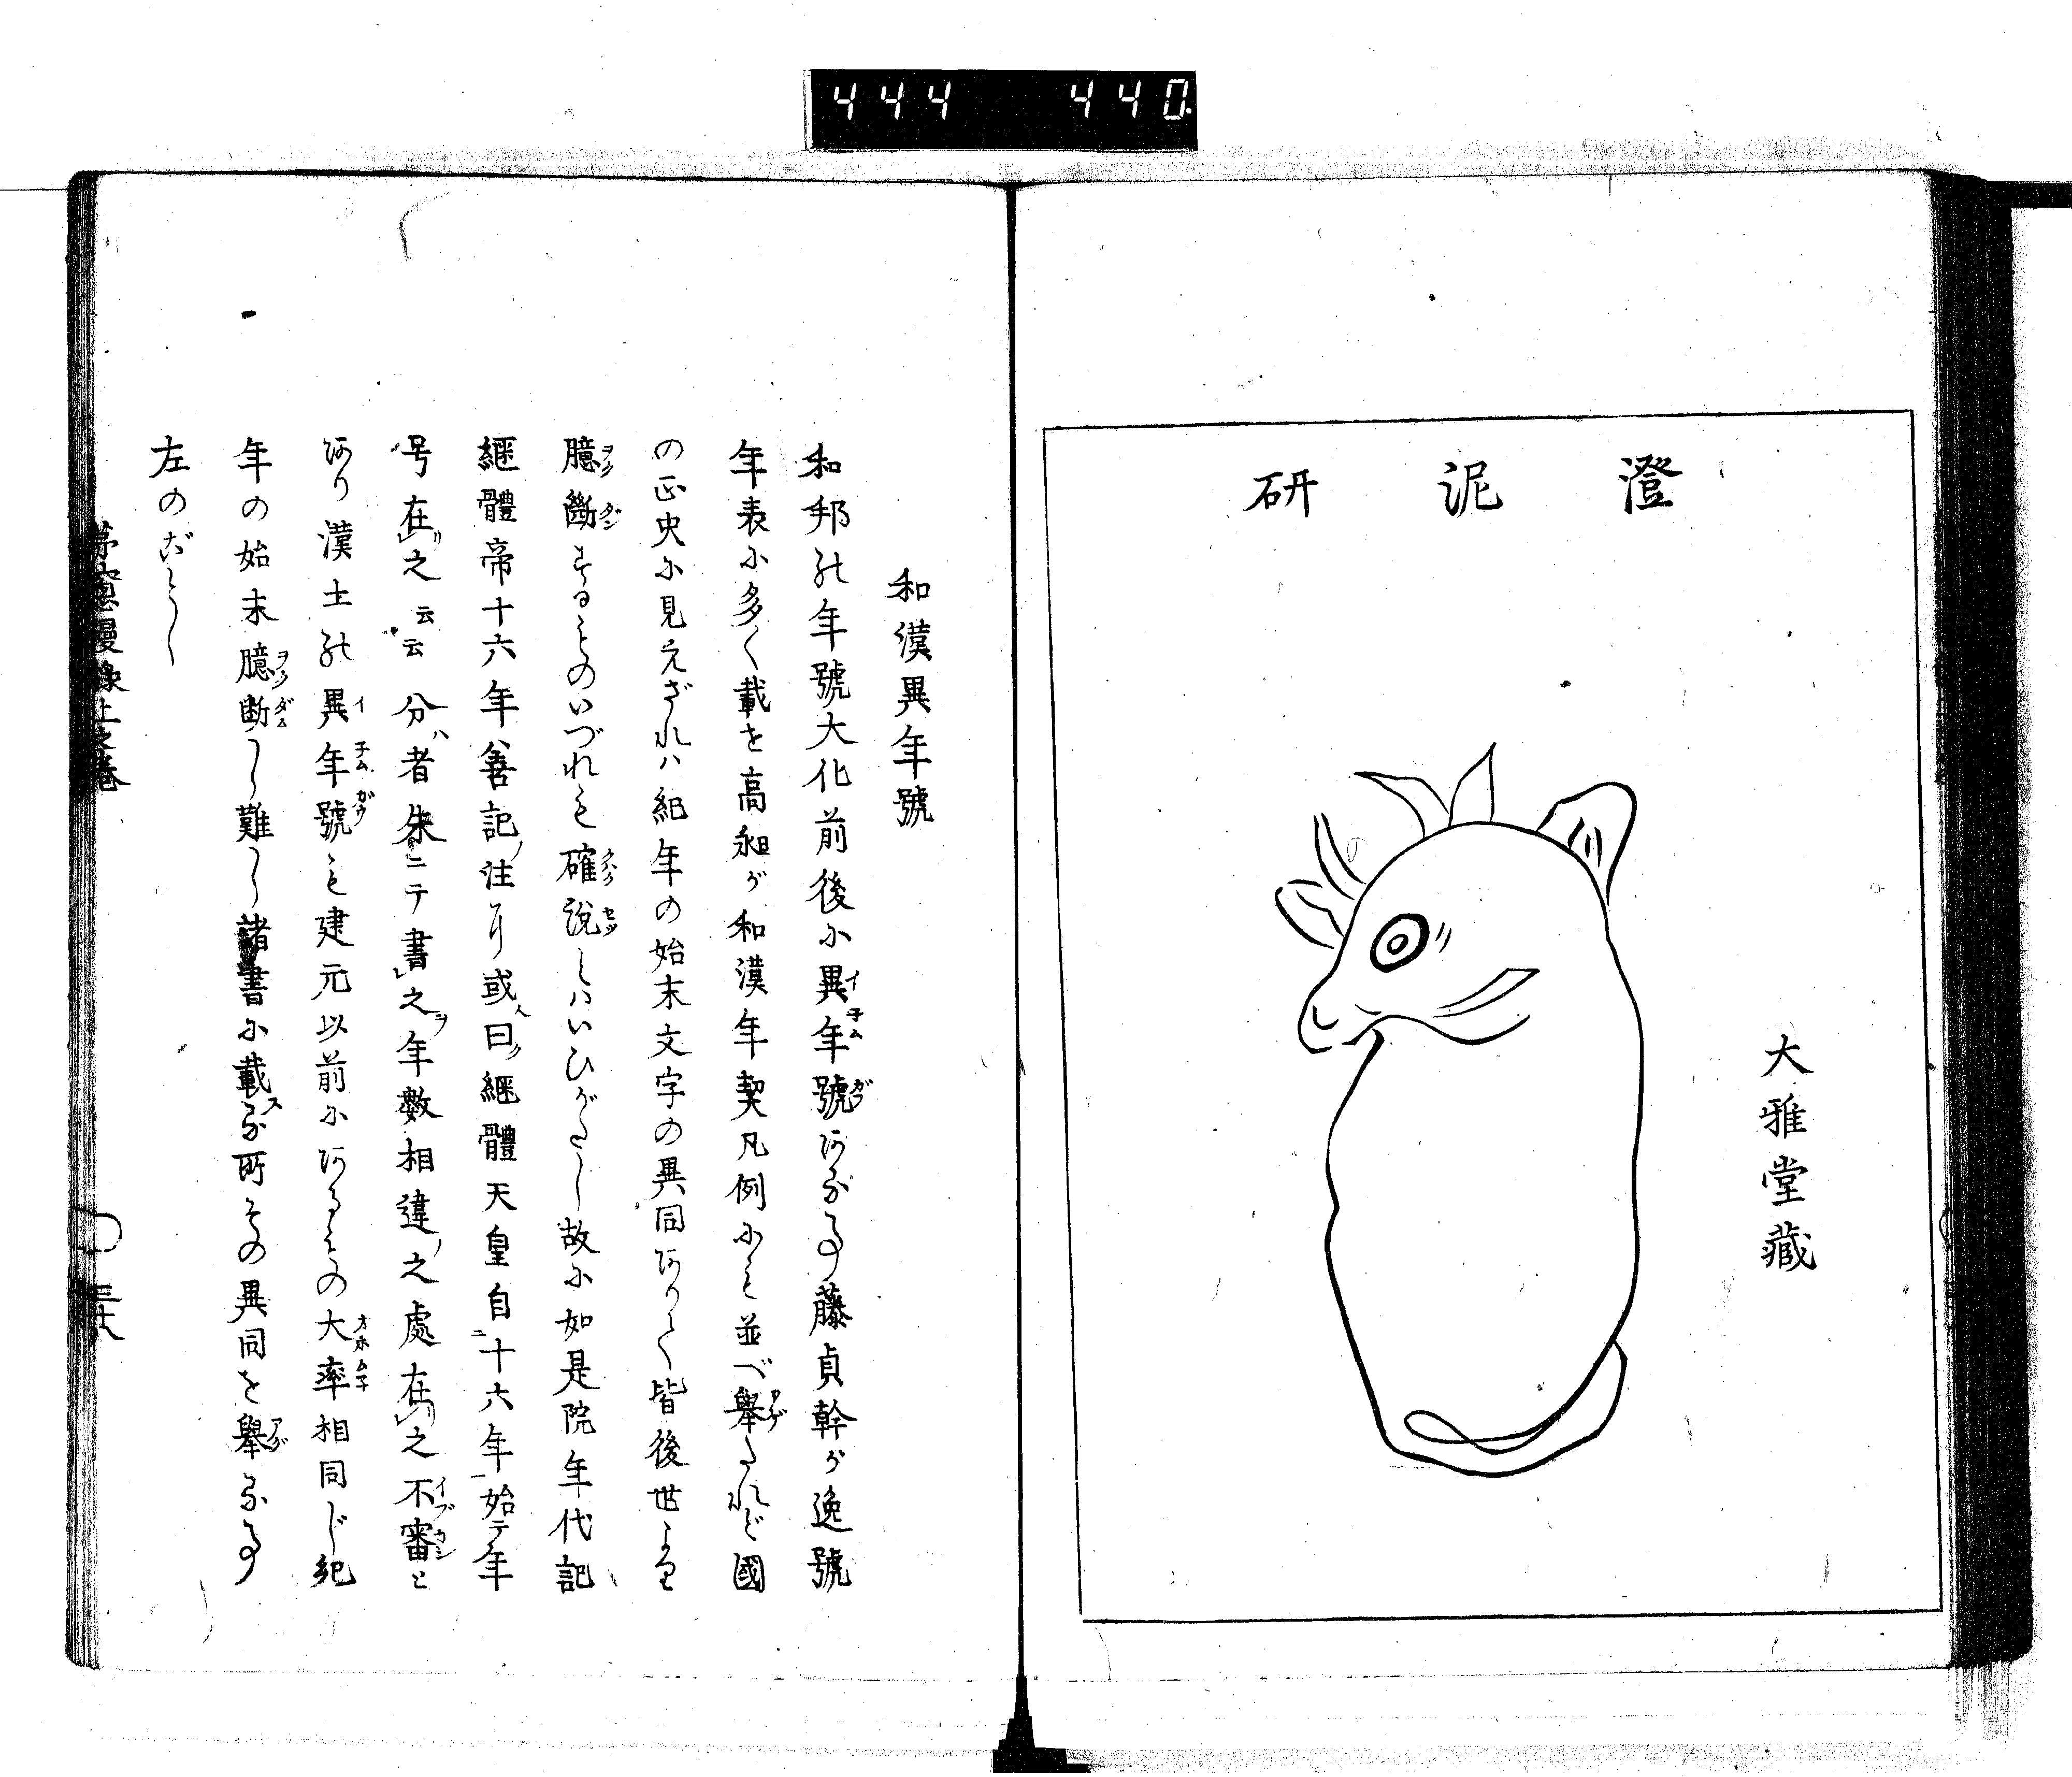 444 440
澄泥研
大雅堂藏
和漢異年號
和邦の年號大化前後に異年號ある事藤貞幹が逸號
年表に多く載を高昶が和漢年契凡例にも並べ擧たれど國
の正史に見えざれハ紀年の始末文字の異同ありて皆後世より
臆斷することのいづれも確説とハいひがたし故に如是院年代記
継體帝十六年善記ノ注ニ或人曰ク継體天皇自十六年始テ年
号在之云云分ハ者朱ニテ書之ヲ年數相違ノ之處在之不審と
あり漢土の異年號も建元以前にあるもの大率相同じ紀
年の始末臆断し難し諸書に載スる所その異同を擧る事
左のごとし
茅窓漫録上之巻
三十八